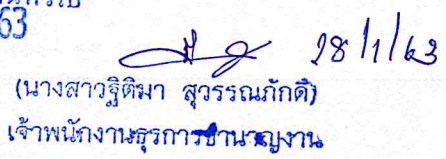 63
28/1/63
(นางสาวฐิติมา สุวรรณภักดี)
เจ้าพนักงานธุรการชำนาญงาน